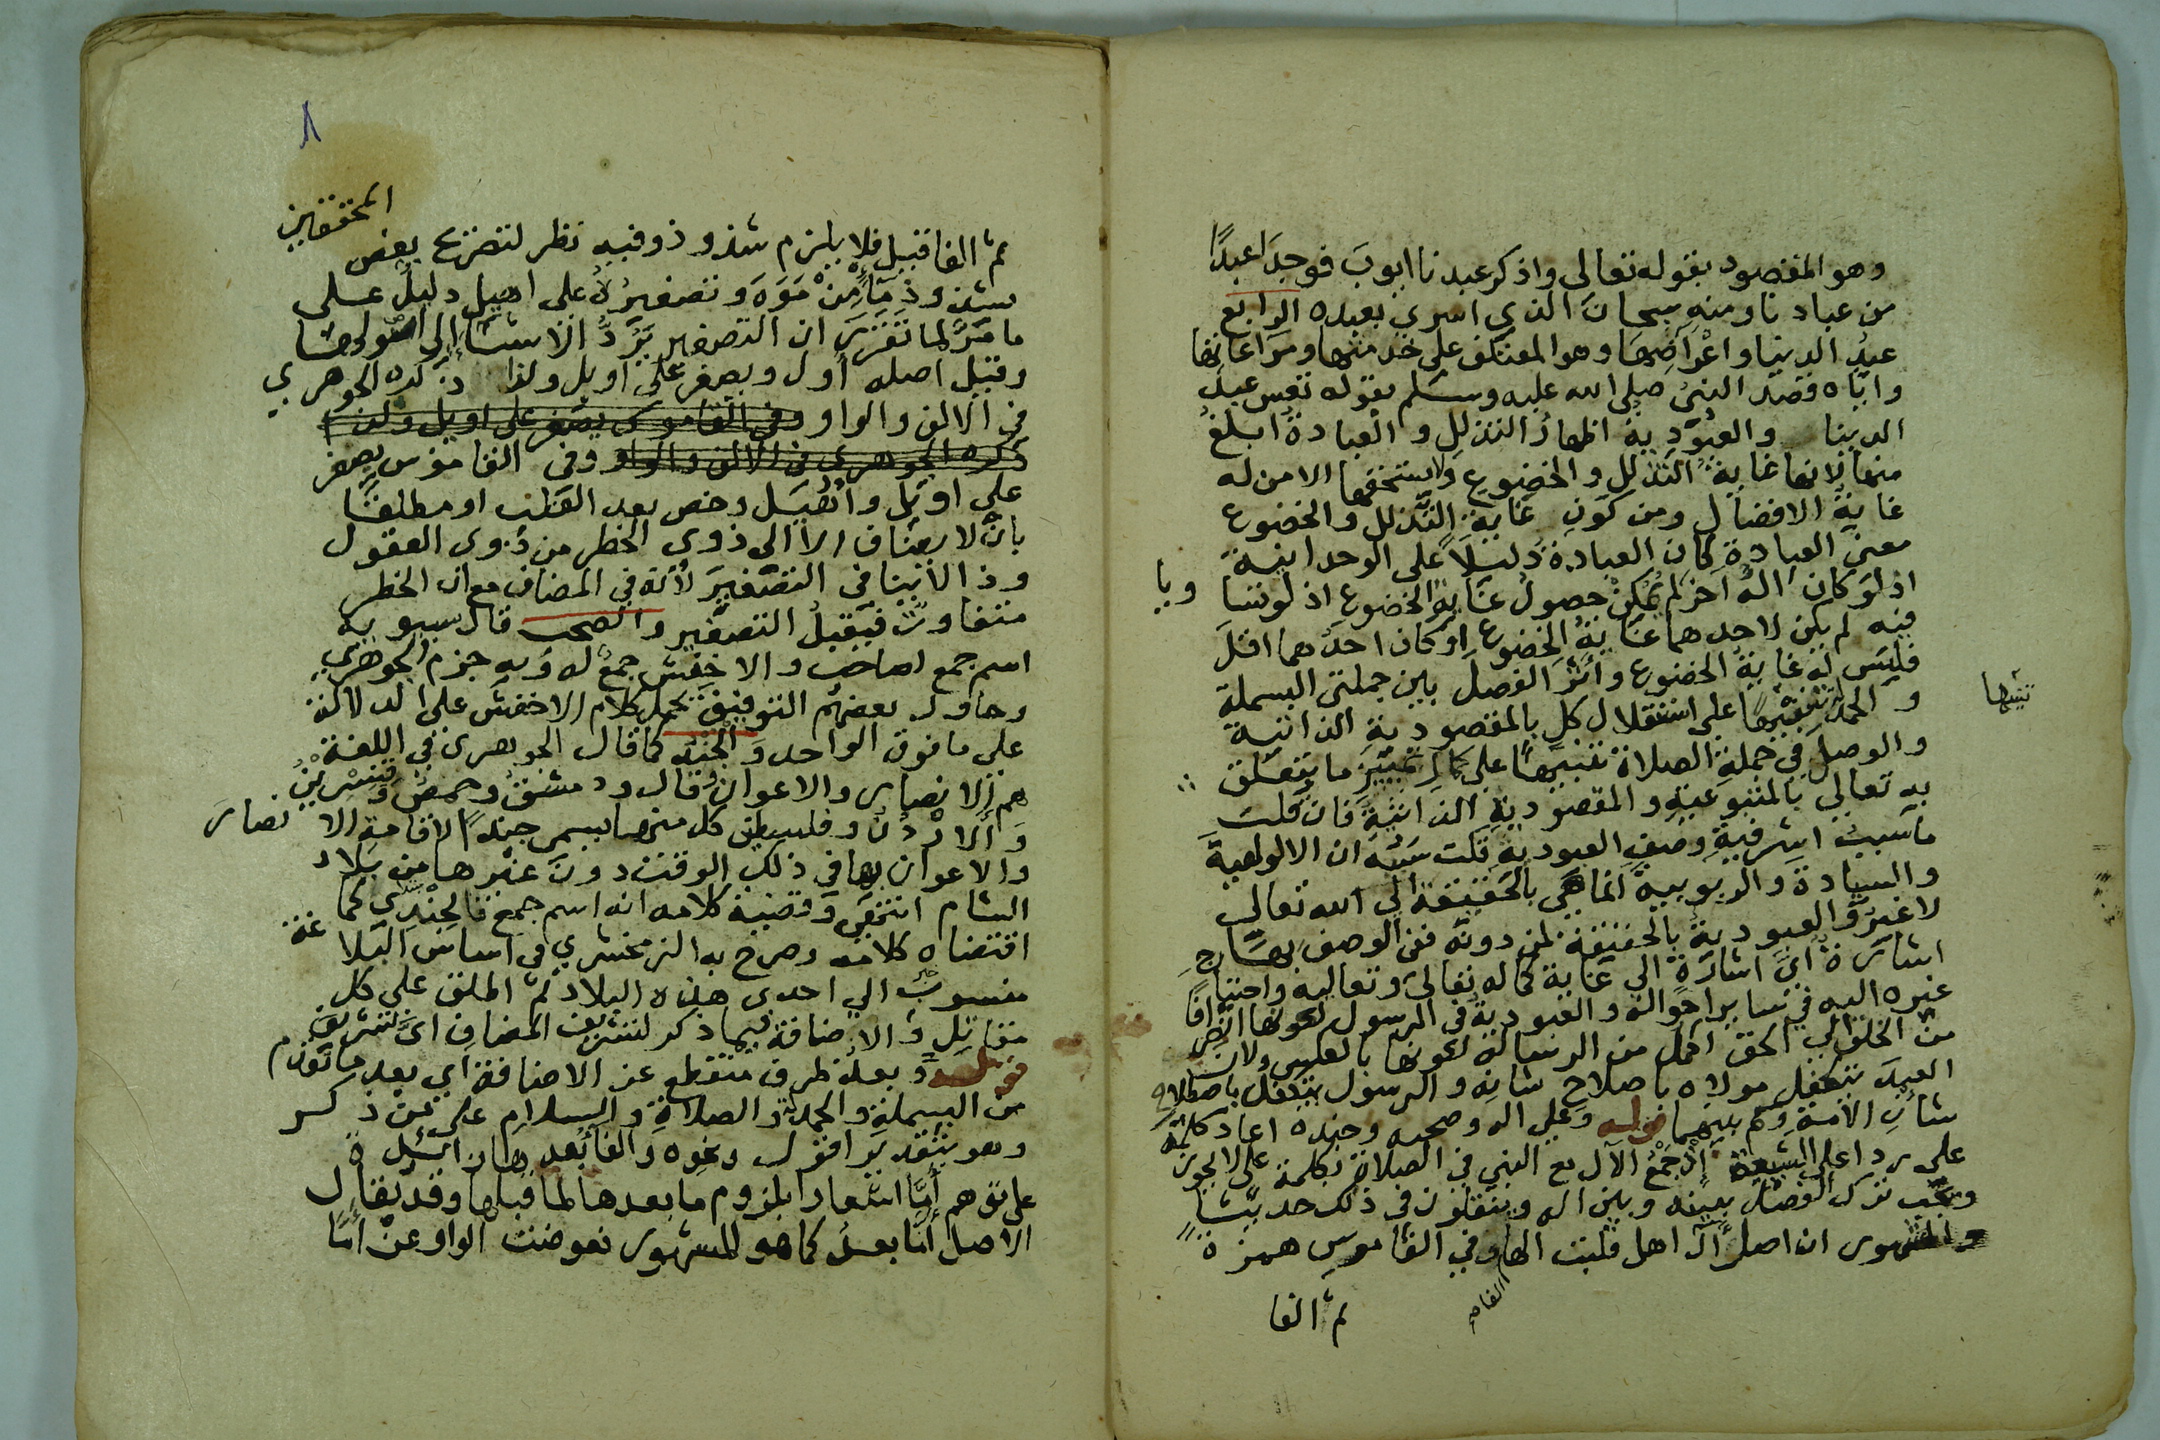 وهو المقصود بقوله تعالى واذكر عبدنا ايوبَ فوجدَا عبدًا
من عبادنا ومنه سبحانَ الذي اسرى بعبده الرابع
عبدُ الدنيا واعْراضِها وهو المعتكف على خدمتها ومراعاتها
وايّاه قصدَ النبىُ صلى الله عليه وسلم بقوله تعس عبدُ
الدينا والعبُوديةُ اظهارُ التذللِ والعبادةُ ابلغُ
منها لانها غايةُ التذلل والخضوعِ ولا يستحقها الا من له
غايةُ الافضالِ ومن كونِ غايةِ التذلل والخضوع
معنى العبادةِ كان العبادةُ دليلاً على الوحدانيةِ
اذ لو كان الهُ آخر لم يُمْكنْ حصولُ غايةِ الخضوع اذ لو تسا
ويا
فيه لم يكن لاحدهما غايةُ الخضوع او كان احدهما اقلَ
فليس له غايةُ الخضوع وآثرَ الفصلَ بين جملتى البسملة
والحمد تنبيهًا على استقلال كلٍ بالمقصوديةِ الذاتيةِ
تنبيها
والوصلَ في جملةِ الصلاةِ تنبيهًا على كمالِ تمييزِ ما يتعلق
به تعالى بالمتبوعيةِ والمقصوديةِ الذاتيةِ فان قلت
ما سببُ اشرفيةِ وصفِ العبودية قلت سببه ان الالوهيةَ
والسيادةَ والربوبيةَ انما هى بالحقيقة الى الله تعالى
لا غيرُ والعبوديةُ بالحقيقةِ لمن دونَه ففى الوصفِ بها
اشارةٌ اىُّ اشارةٍ الى غايةِ كماله تعالى وتعاليه واحتياج
غيره اليه في ساير احوالِه والعبوديةُ في الرسول لكونها انصرافًا
من الخلق الى الحق اكمل من الرسالة لكونها بالعكس ولان
العبدَ يتكفل مولاه باصلاحِ شانِه والرسول يتكفل باصلاح
شانِ الامةِ وكم بينهما قوله وعلى اله وصحبه وجنده اعاد كلمةَ
على ردا على الشيعة اذْ جَمْعُ الآل مع النبي في الصلاة بكلمة على لا يجوزُ
ويجب ترك الفصل بينه وبين اله وينقلون في ذلك حديثًا
والمشهور ان اصلَ آلٍ اهل قلبت الهاء وفي القاموسِ همزة
ثم الفا
المحققين
ثم الفا قيل فلا يلزم شذوذ وفيه نظر لتصريح بعض
بشذوذ مَاءٍ مِنْ مَوَهَ وتصغيرُهُ على اهيل دليلُ على
ما مَرَّ لما تقررَ ان التصغير يَرُدُّ الاشياَ الى اصولها
وقيل اصله أول ويصغر على اويل ولذا ذكره الجوهرى
فى الالف والواو وفى القاموس يصغر على اويل ولذا
ذكره الجوهرى فى الالف والواو وفى القاموس يصغر
على اويل واُهَيَل وخص بعد القلب او مطلقًا
بانه لا يضاف الا الى ذوى الخطر من ذوى العقول
وذا لا ينافى التصغيرَ لانه في المضاف مع ان الخطر
متفاوتٌ فيقبلُ التصغير والصحب قال سيبويه
اسم جمع لصاحب والاخفش جمع له وبه جزم الجوهرى
وحاول بعضهُم التوفيقَ بحمل كلامِ الاخفش على الدلالة
على ما فوق الواحد وَالجُنْد كما قال الجوهرى في اللغة
هم الانصار والاعوان وقال ودمشقُ وحمصُ وقِنَسْرِيْنُ
وَالأُرْدُنُّ وفلسطين كل منها يسمى جندًا لاقامة الا نصار
والاعوان بها في ذلك الوقت دون غيرها من بلاد
الشام انتهى وقضية كلامه انه اسم جمع فالجُنْدِىّ كما
اقتضاه كلامه وصرح به الزمخشري في اساس البلا غة
منسوبٌ الى احدى هذه البلاد ثم اطلق على كل
مقاتِلٍ والاضافة فيما ذكر لتشريف المضاف اىَّ تشريف
قوله وبعد ظرف منقطع عن الاضافة اي بعد ما تقدم
من البسملة والحمدلة والصلاةِ والسلامِ على مَنْ ذكر
وهو بتقدير اقول ونحوه والفا بعدها زايدة
على توهم أمَّا اشعارا بلزوم ما بعدها لما قبلها وقد يقال
الاصل أمّا بعدُ كما هو المشهور فعوضت الواو عنْ أمّا